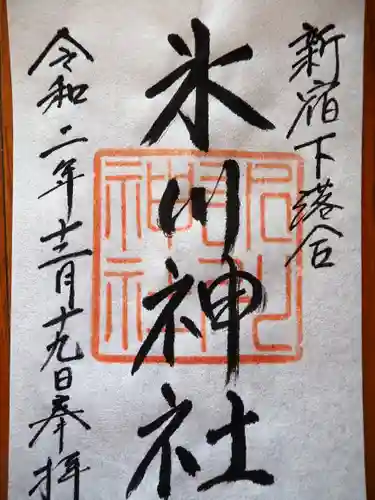 新宿下落合
氷川神社
令和二年十二月十九日奉拝
氷川神社